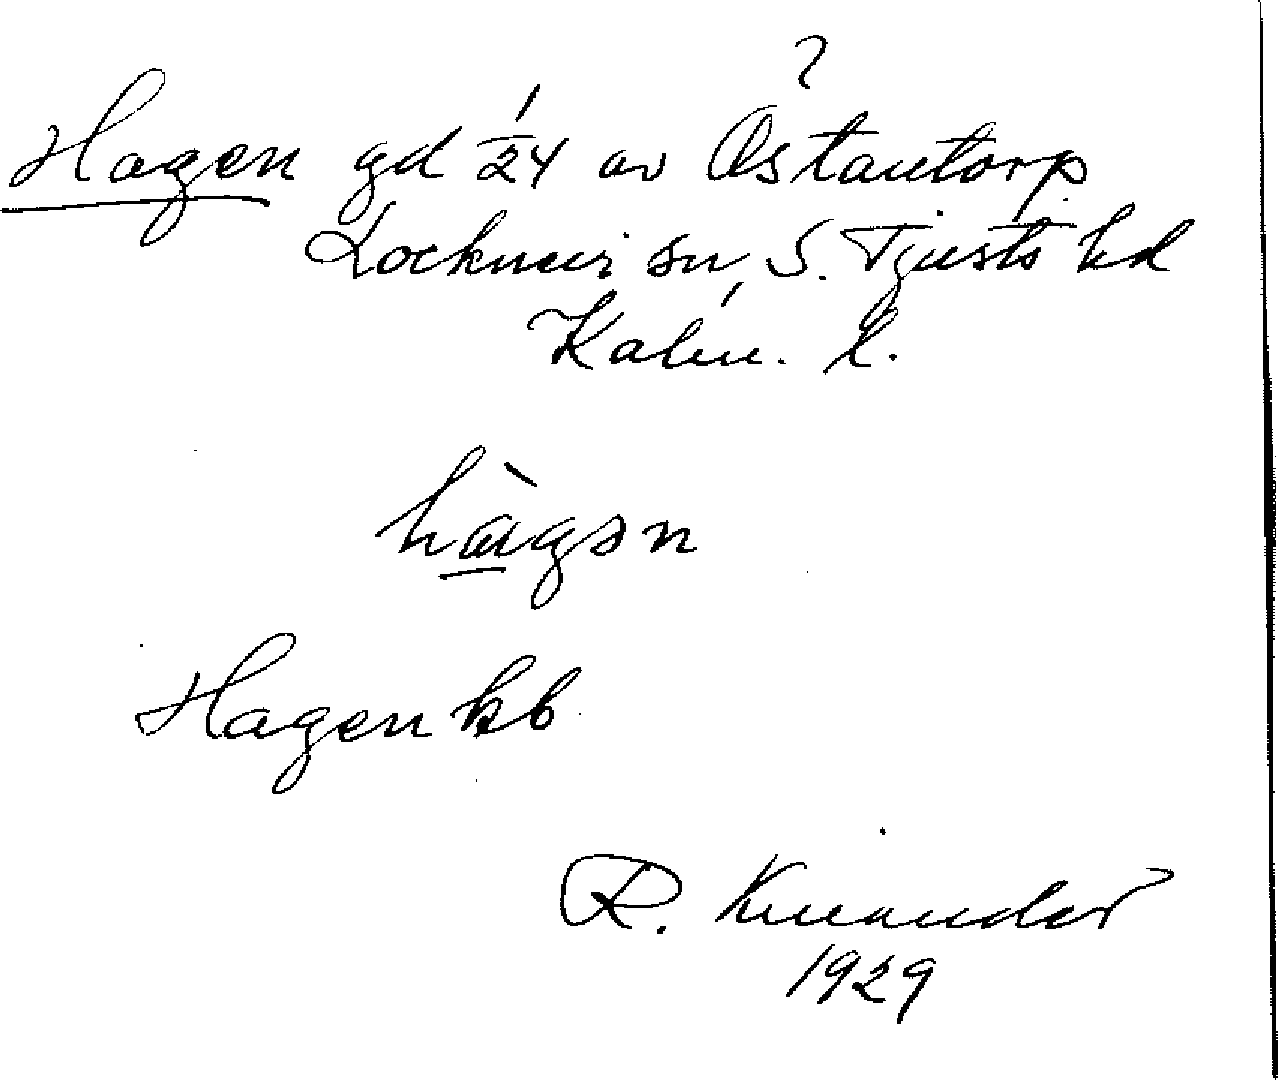 ?
Hagen gd 1/24 av Östantorp
Locknevi sn, S. Tjusts hd
Kalm. l.
hàgən
Hagen kb
R. Knander
1929